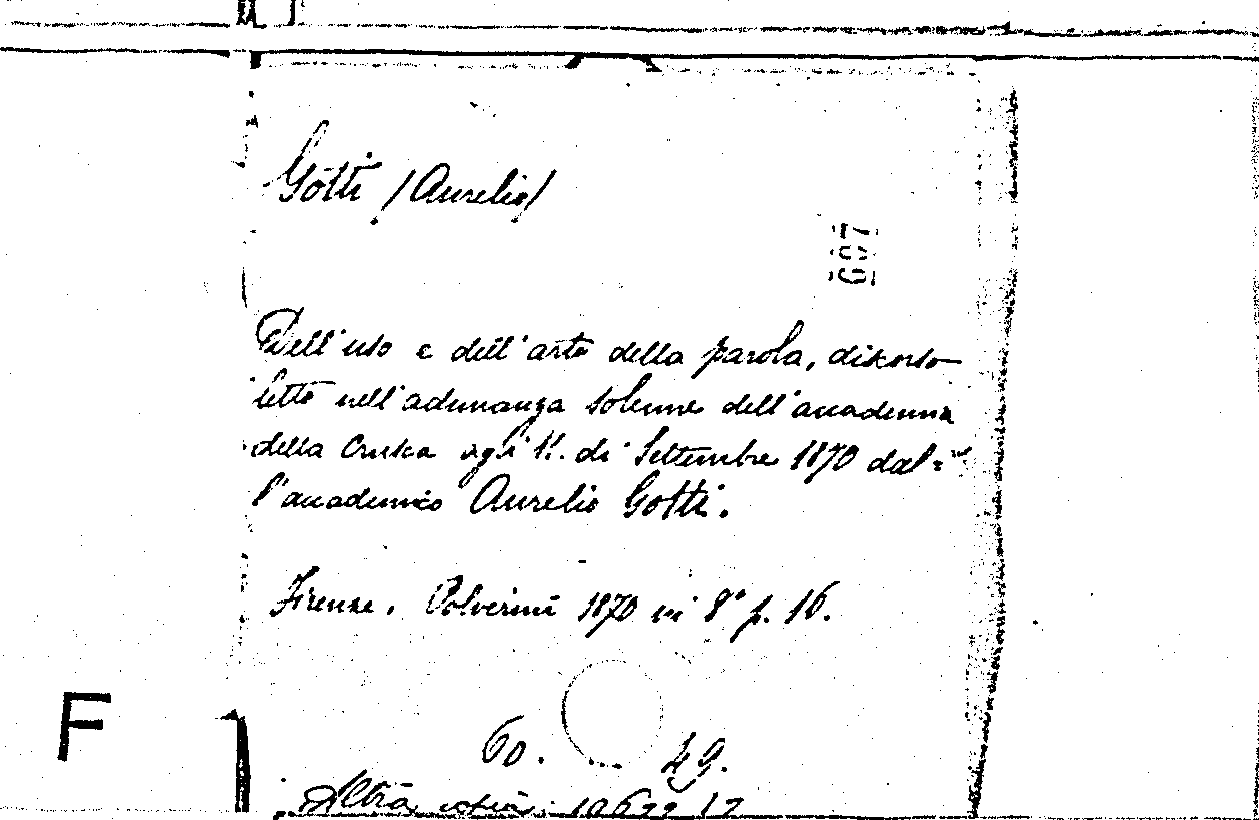 Gotti /Aurelio/
607
Dell'uso e dell'arte della parola, discorso
letto nell'adunanza solenne dell'accademia
della Crusca agli 11. di Settembre 1870 dal-
l'accademico Aurelio Gotti.
Firenze. Polverini 1870 in 8° p. 16.
60. 49.
Altra copia:
F